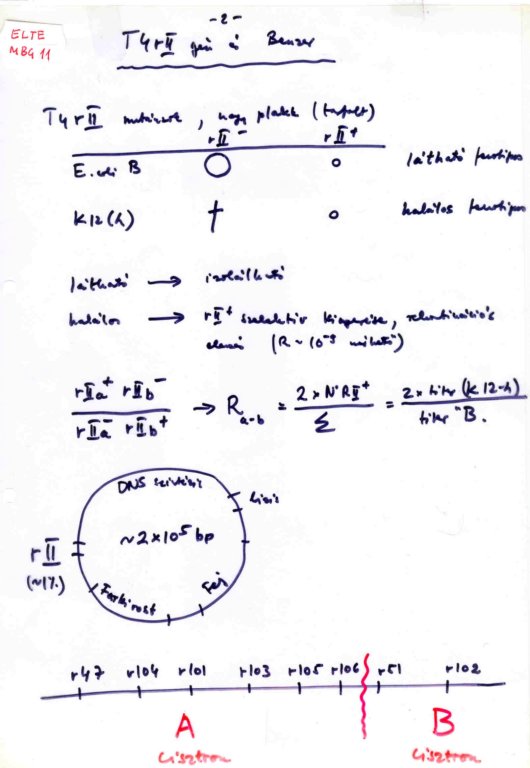 ELTE
MBG 11
-2-
T4rII gén és Benzer
T4rII mutánsok, nagy plakk (tarfolt)
rII⁻ rII⁺
E. coli B látható fenotípus
K12(λ) halálos fenotípus
látható → izolálható
halálos → rII⁺ szelektív kinyerése, rekombinációs
elemzés (R ~ 10⁻⁵ mérhető)
rIIa⁺ rIIb⁻
rIIa⁻ rIIb⁺
→ R a-b = 2 × N rII⁺ / Σ = 2 × titer (K12-λ) / titer "B.
DNS szintézis
lízis
~2×10⁵ bp
rII
(~1%)
fej
Farkirost
r47 r104 r101 r103 r105 r106 r51 r102
A B
Cisztron Cisztron